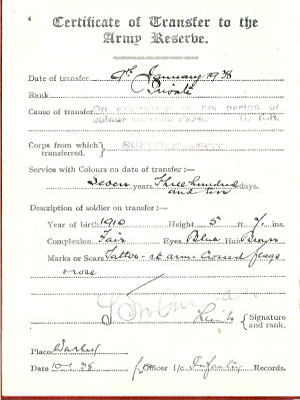 Certificate of Transfer to the
Army Reserve.
Date of transfer 9th January 1938
Rank Private
Cause of transfer On expiration of his period of
Corps from which
transferred.
Service with Colours on date of transfer:—
Seven years Three hundred
and ten days.
Description of soldier on transfer:—
Year of birth 1910 Height 5 ft. 7 ins.
Complexion Fair Eyes Blue Hair Brown
Marks or Scars Tattoo - rt arm. Crossed flags
& rose
Signature
and rank.
Place Warley
Date 10-1-38 Officer i/c Infantry Records.